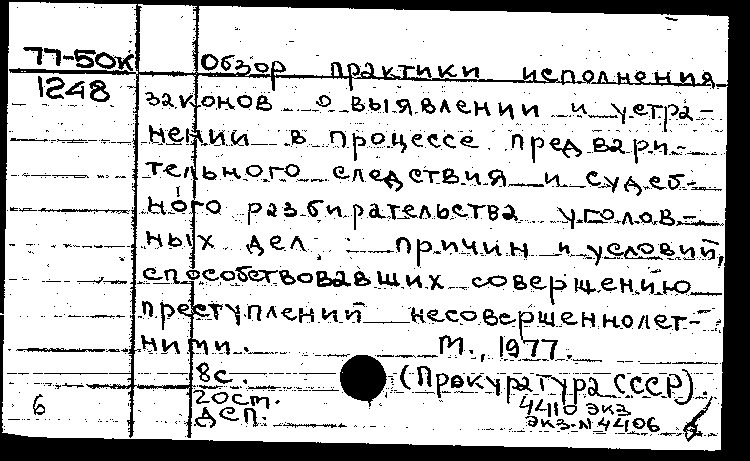 77-50к Обзор практики исполнения
1248 законов о выявлении и устра-
нении в процессе предвари-
тельного следствия и судеб-
ного разбирательства уголов-
ных дел причин и условий,
способствовавших совершению
преступлений несовершеннолет-
ними. М., 1977.
8с. (Прокуратура СССР).
20ст. 4410 экз
6 ДСП. экз. N 4406